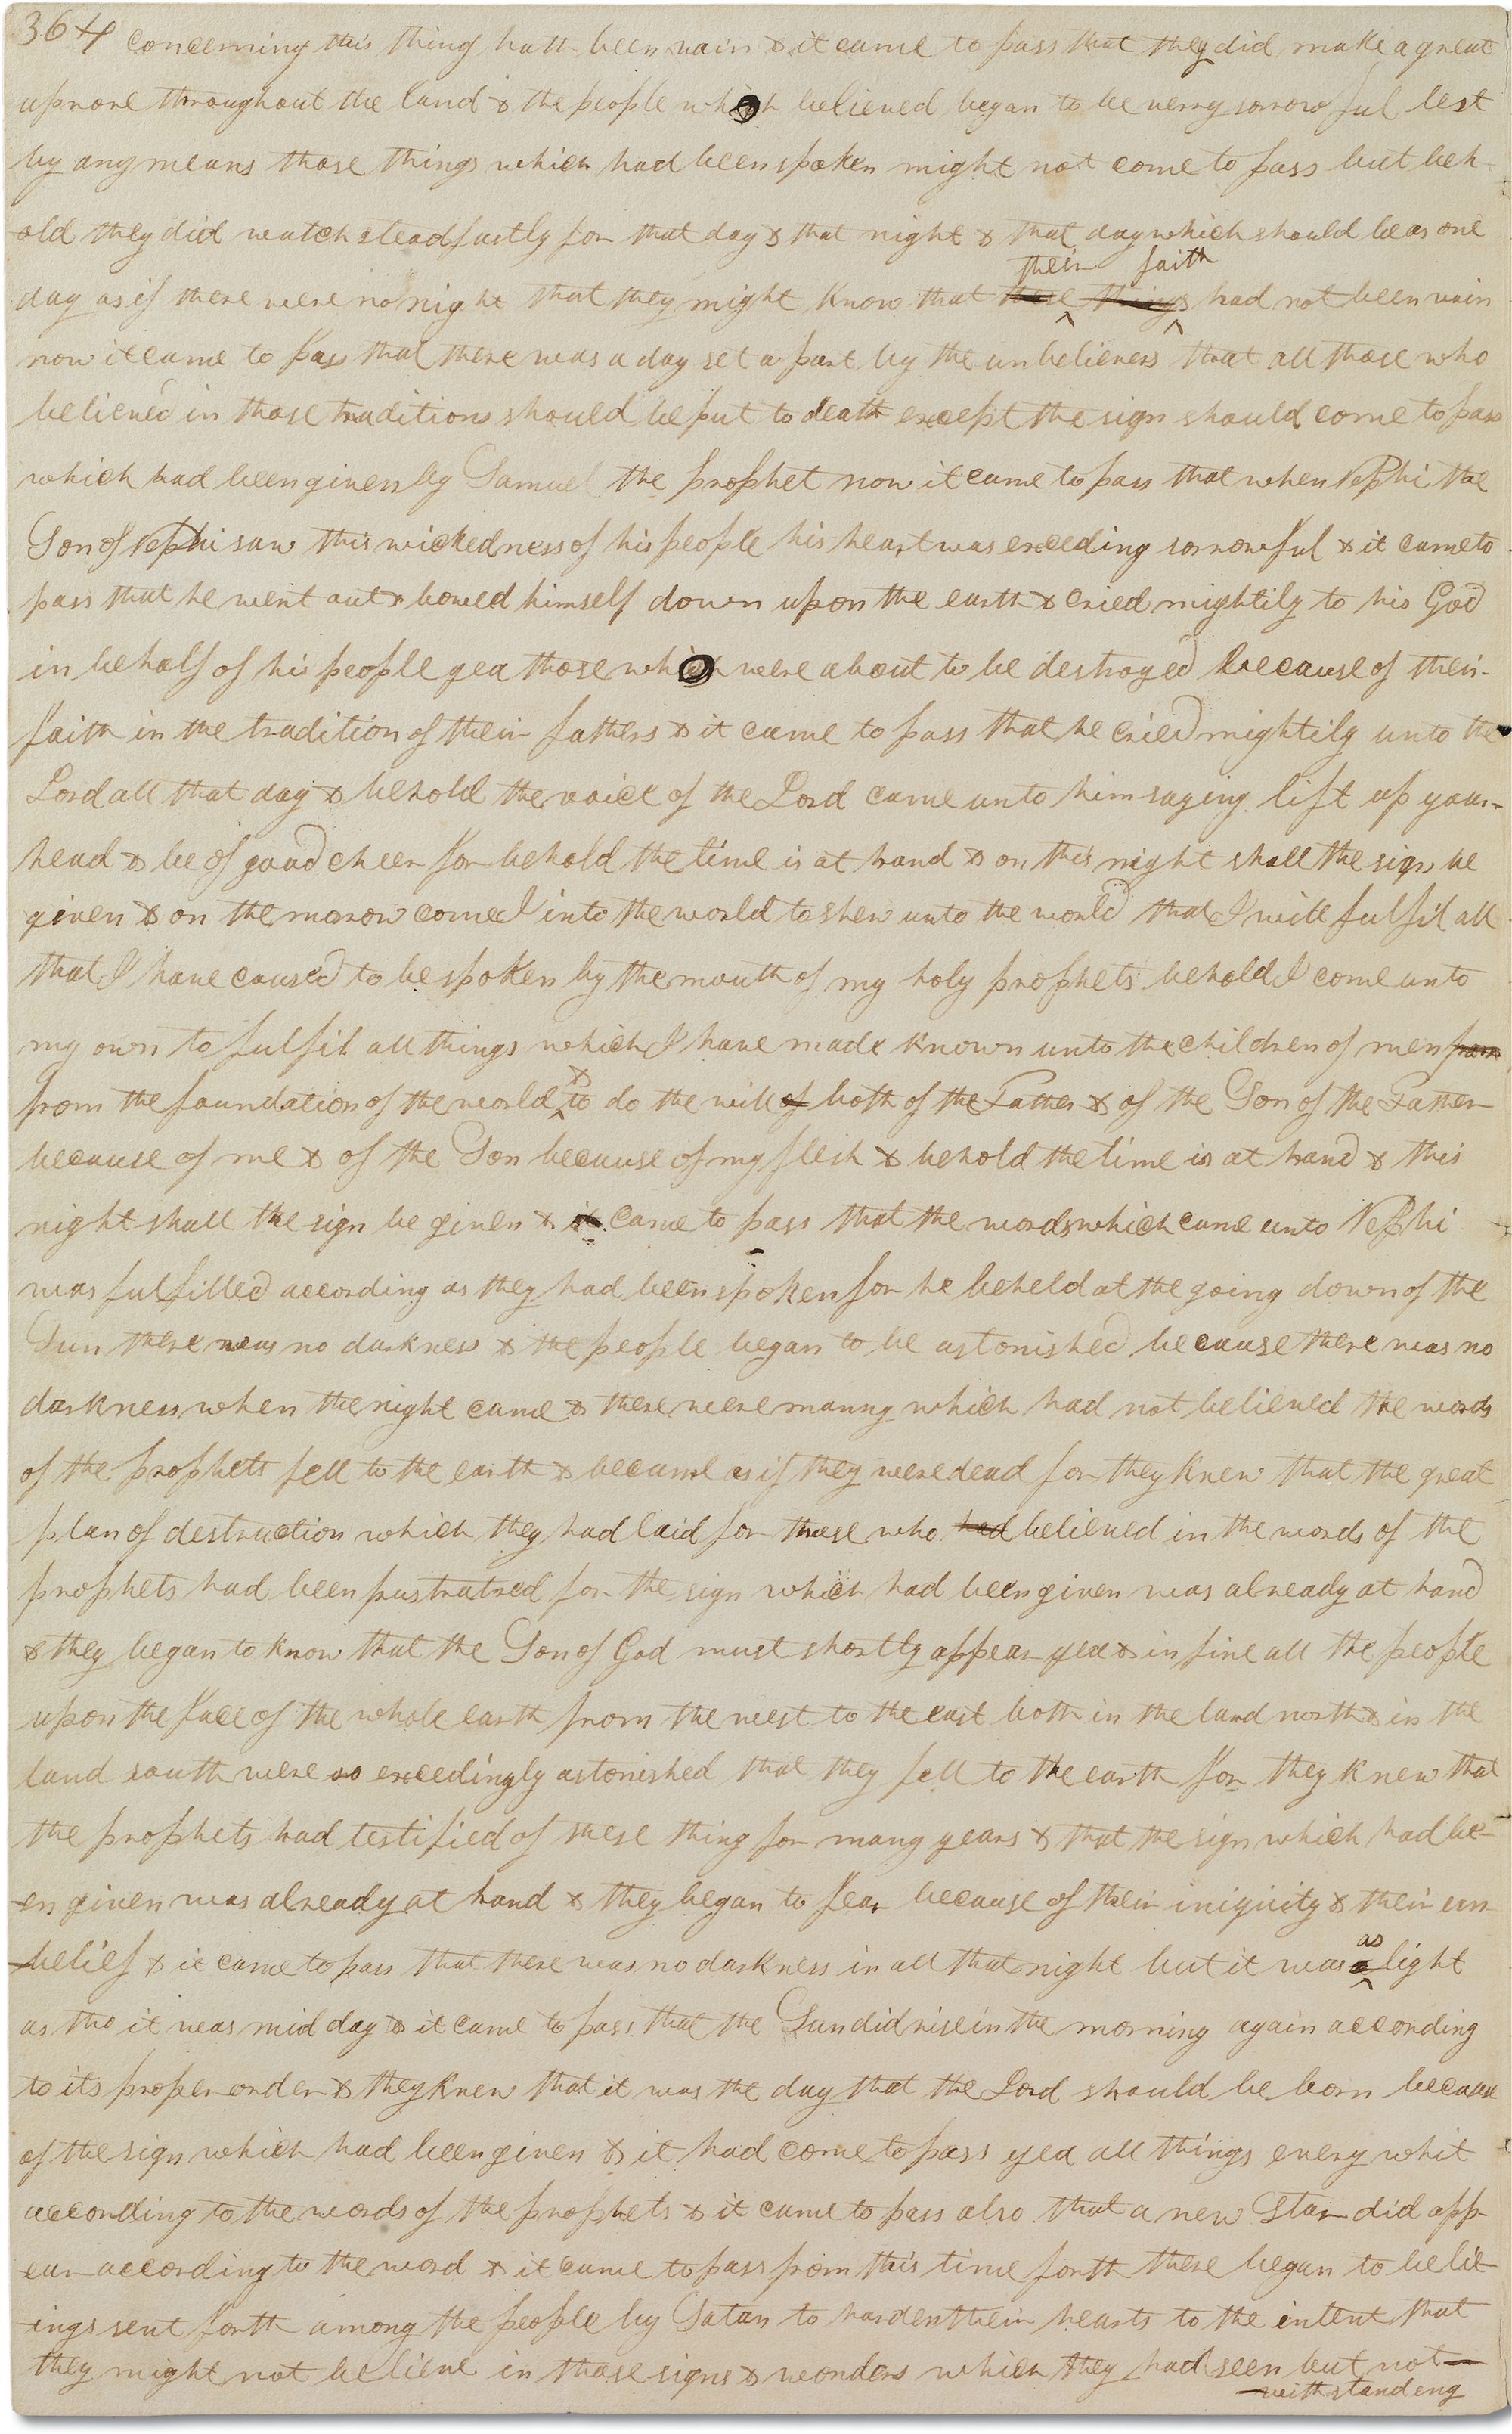 364 concerning this thing hath been vain & it came to pass that they did make a great
uprore throughout the land & the people which believed began to be verry sorrowful lest
by any means those things which had been spoken might not come to pass but beh-
-old they did watch steadfastly for that day & that night & that day which should be as one
their faith
day as if there were no night that they might know that these things had not been vain
now it came to pass that there was a day set apart by the unbelievers that all those who
believed in those traditions should be put to death except the sign should come to pass
which had been given by Samuel the prophet now it came to pass that when Nephi the
Son of Nephi saw this wickedness of his people his heart was exceding sorrowful & it came to
pass that he went out & bowed himself down upon the earth & cried mightily to his God
in behalf of his people yea those which were about to be destroyed because of their
faith in the tradition of their fathers & it came to pass that he cried mightily unto the
Lord all that day & behold the voice of the Lord came unto him saying lift up your
head & be of good cheer for behold the time is at hand & on this night shall the sign be
given & on the morrow come I into the world to shew unto the world that I will fulfil all
that I have caused to be spoken by the mouth of my holy prophets behold I come unto
my own to fulfil all things which I have made known unto the children of men from
&
from the foundation of the world to do the will of both of the Father & of the Son of the Father
because of me & of the Son because of my flesh & behold the time is at hand & this
night shall the sign be given & it came to pass that the words which came unto Nephi
was fulfilled according as they had been spoken for he beheld at the going down of the
Sun there was no darkness & the people began to be astonished because there was no
darkness when the night came & there were manny which had not believed the words
of the prophets fell to the earth & became as if they were dead for they knew that the great
plan of destruction which they had laid for those who had believed in the words of the
prophets had been frustrated for the sign which had been given was already at hand
& they began to know that the Son of God must shortly appear yea & in fine all the people
upon the face of the whole earth from the west to the east both in the land north & in the
land south were so exceedingly astonished that they fell to the earth for they knew that
the prophets had testified of these thing for many years & that the sign which had be-
-en given was already at hand & they began to fear because of their iniquity & their un
as
-belief & it came to pass that there was no darkness in all that night but it was a light
as tho it was mid day & it came to pass that the Sun did rise in the morning again according
to its proper order & they knew that it was the day that the Lord should be born because
of the sign which had been given & it had come to pass yea all things every whit
according to the words of the prophets & it came to pass also that a new Star did app-
-ear according to the word & it came to pass from this time forth there began to be lie-
-ings sent forth among the people by Satan to harden their hearts to the intent that
they might not believe in those signs & wonders which they had seen but not-
-withstanding